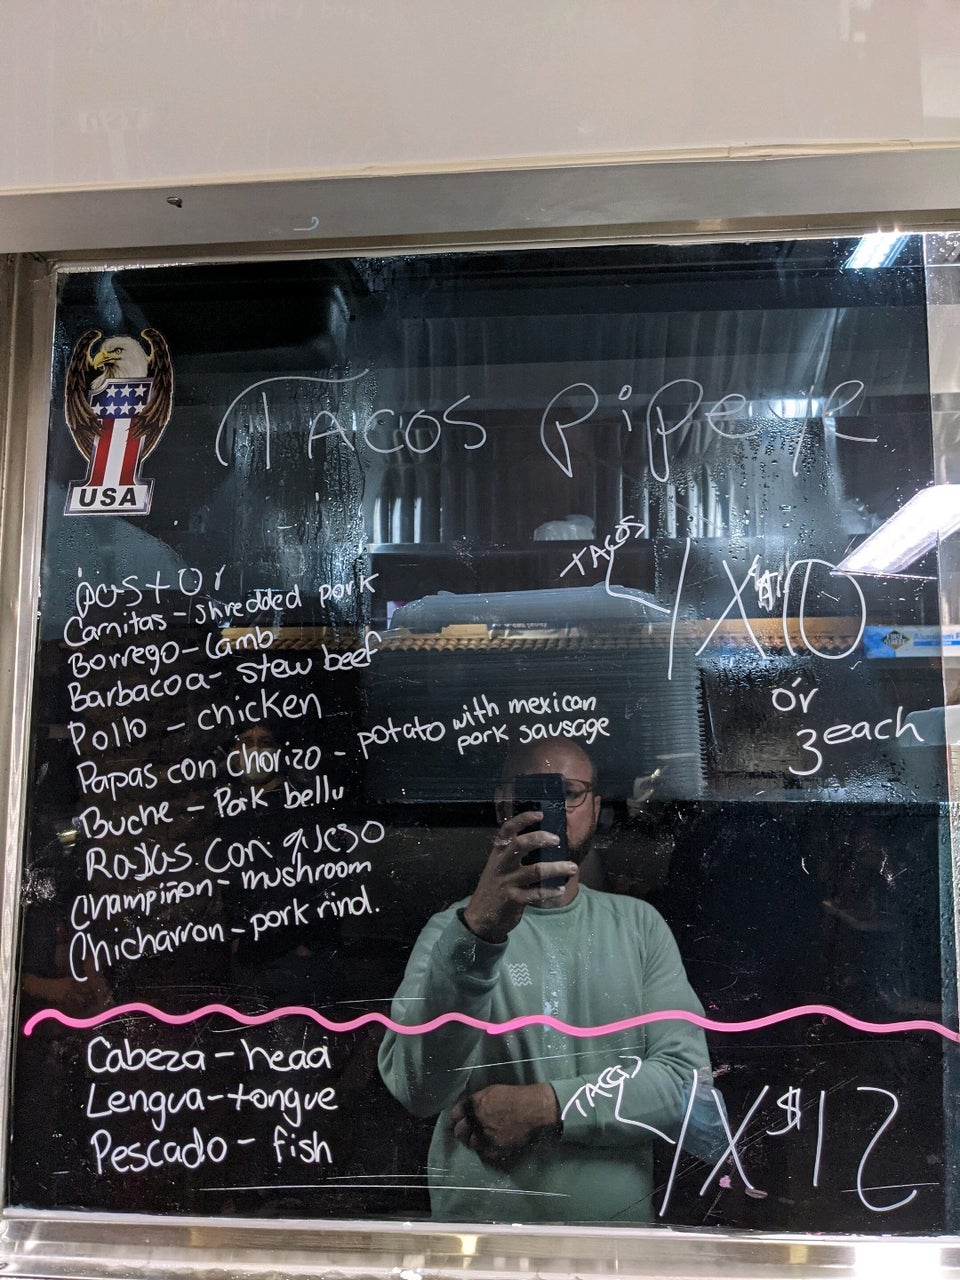 USA
TACOS Pipeye
pastor
Carnitas - shredded pork
Borrego - Lamb
Barbacoa - stew beef
Pollo - chicken
Papas con Chorizo - potato with mexican
pork sausage
Buche - Pork belly
Rajas con queso
Champiñon - mushroom
Chicharron - pork rind.
TACOS
X $10
or
3 each
Cabeza - head
Lengua - tongue
Pescado - fish
TACOS
X $12